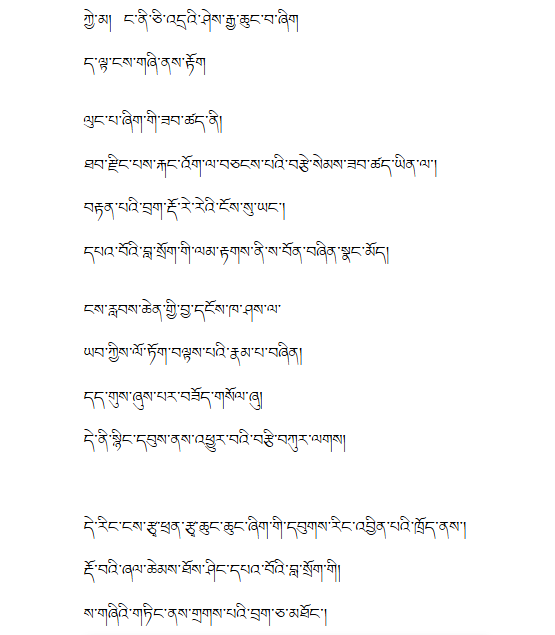 ཀྱེ་མ། ང་ནི་ཅི་འདྲའི་ཤེས་རྒྱ་ཆུང་བ་ཞིག
ད་ལྟ་ངས་གཞི་ནས་རྟོག
ལུང་པ་ཞིག་གི་ཟབ་ཚད་ནི།
ཐབ་རྫིང་པས་རྐང་འོག་ལ་བཅངས་པའི་བརྩེ་སེམས་ཟབ་ཚད་ཡིན་ལ་།
བརྟན་པའི་བྲག་རྡོ་རེ་རེའི་ངོས་སུ་ཡང་།
དཔའ་བོའི་བླ་སྲོག་གི་ལམ་རྟགས་ནི་ས་བོན་བཞིན་སྣང་མོད།
ངས་རླབས་ཆེན་གྱི་བྱ་དངོས་ཁ་ཤས་ལ་
ཡབ་ཀྱིས་ལོ་ཏོག་བལྟས་པའི་རྣམ་པ་བཞིན།
དད་གུས་ཞུས་པར་བཟོད་གསོལ་ཞུ།
དེ་ནི་སྙིང་དབུས་ནས་འཕྱུར་བའི་བརྩི་བཀུར་ལགས།
དེ་རིང་ངས་རྩྭ་ཕྲན་རྩྭ་ཆུང་ཆུང་ཞིག་གི་དབུགས་རིང་འབྱིན་པའི་ཁྲོད་ནས་།
རྡོ་བའི་ཞལ་ཆེམས་ཐོས་ཤིང་དཔའ་བོའི་བླ་སྲོག་གི།
ས་གཞིའི་གཏིང་ནས་གྲགས་པའི་བྲག་ཅ་མཐོང་།